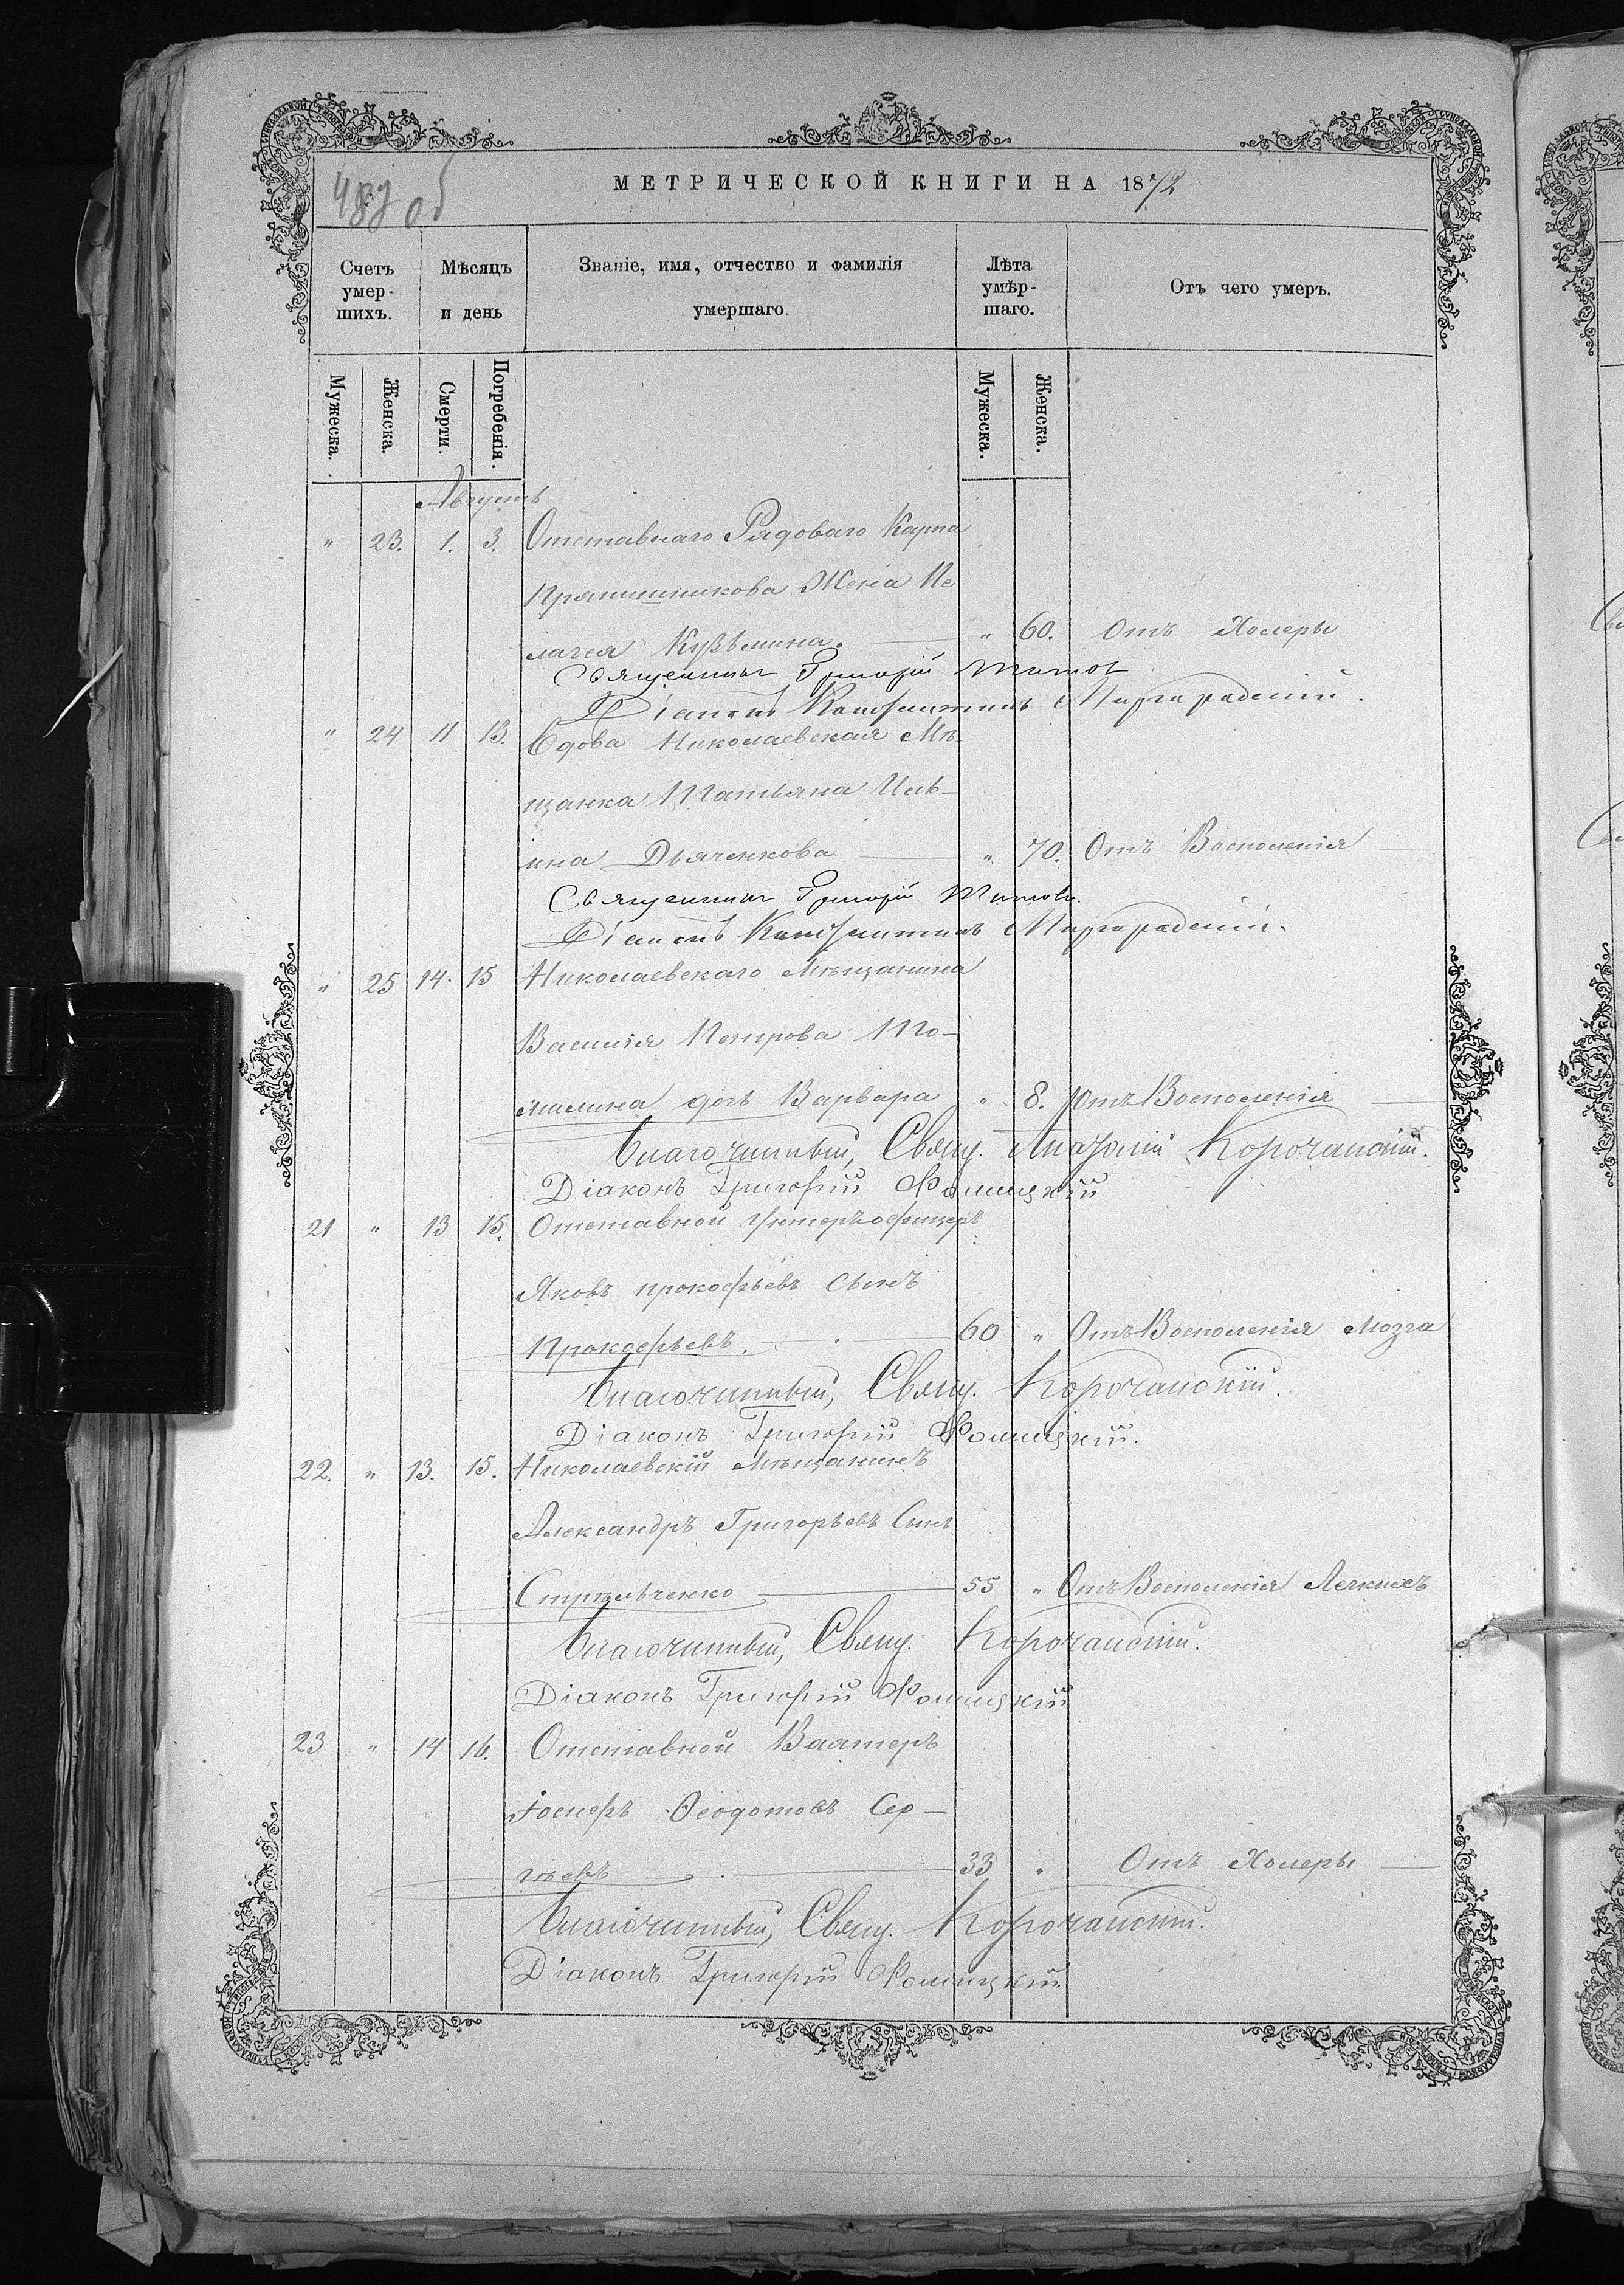 МЕТРИЧЕСКОЙ КНИГИ НА 1872
Счетъ умер-шихъ.
Мѣсяцъ и день
Званіе, имя, отчество и фамилія умершаго.
Лѣта умѣр-шаго.
Отъ чего умеръ.
Мужеска.
Женска.
Смерти.
Погребенія.
Мужеска.
Женска.
Августъ
" 23. 1. 3. Отставнаго Рядоваго Карпа
Прянишникова Жена Пе
лагея Кузьмина. " 60. Отъ Холеры
Священникъ Григорій Титов
Діаконъ Константинъ
" 24 11 13. Вдова Николаевская Мѣ-
щанка Татьяна Иль-
ина Дьяченкова " 70. Отъ Воспаленія
Священникъ Григорій Титовъ.
Діаконъ Константинъ
" 25 14. 15 Николаевскаго Мѣщанина
Василія Петрова То-
милина дочь Варвара " 8. Отъ Воспаленія
Благочинный, Свящ. Корочанскій.
Діаконъ Григорій
21 " 13 15. Отставной Унтеръофицеръ
Яковъ прокофьевъ сынъ
Прокофьевъ. 60 " Отъ Воспаленія Мозга
Благочинный, Свящ. Корочанскій.
Діаконъ Григорій
22. " 13. 15. Николаевскій Мѣщанинъ
Александръ Григорьевъ Сынъ
Стрѣльченко 55 " Отъ Воспаленія Легкихъ
Благочинный, Свящ. Корочанскій.
Діаконъ Григорій
23 " 14 16. Отставной Вахтеръ
Іосифъ Ѳеодотовъ Сер-
гѣевъ 33 " Отъ Холеры
Благочинный, Свящ. Корочанскій.
Діаконъ Григорій